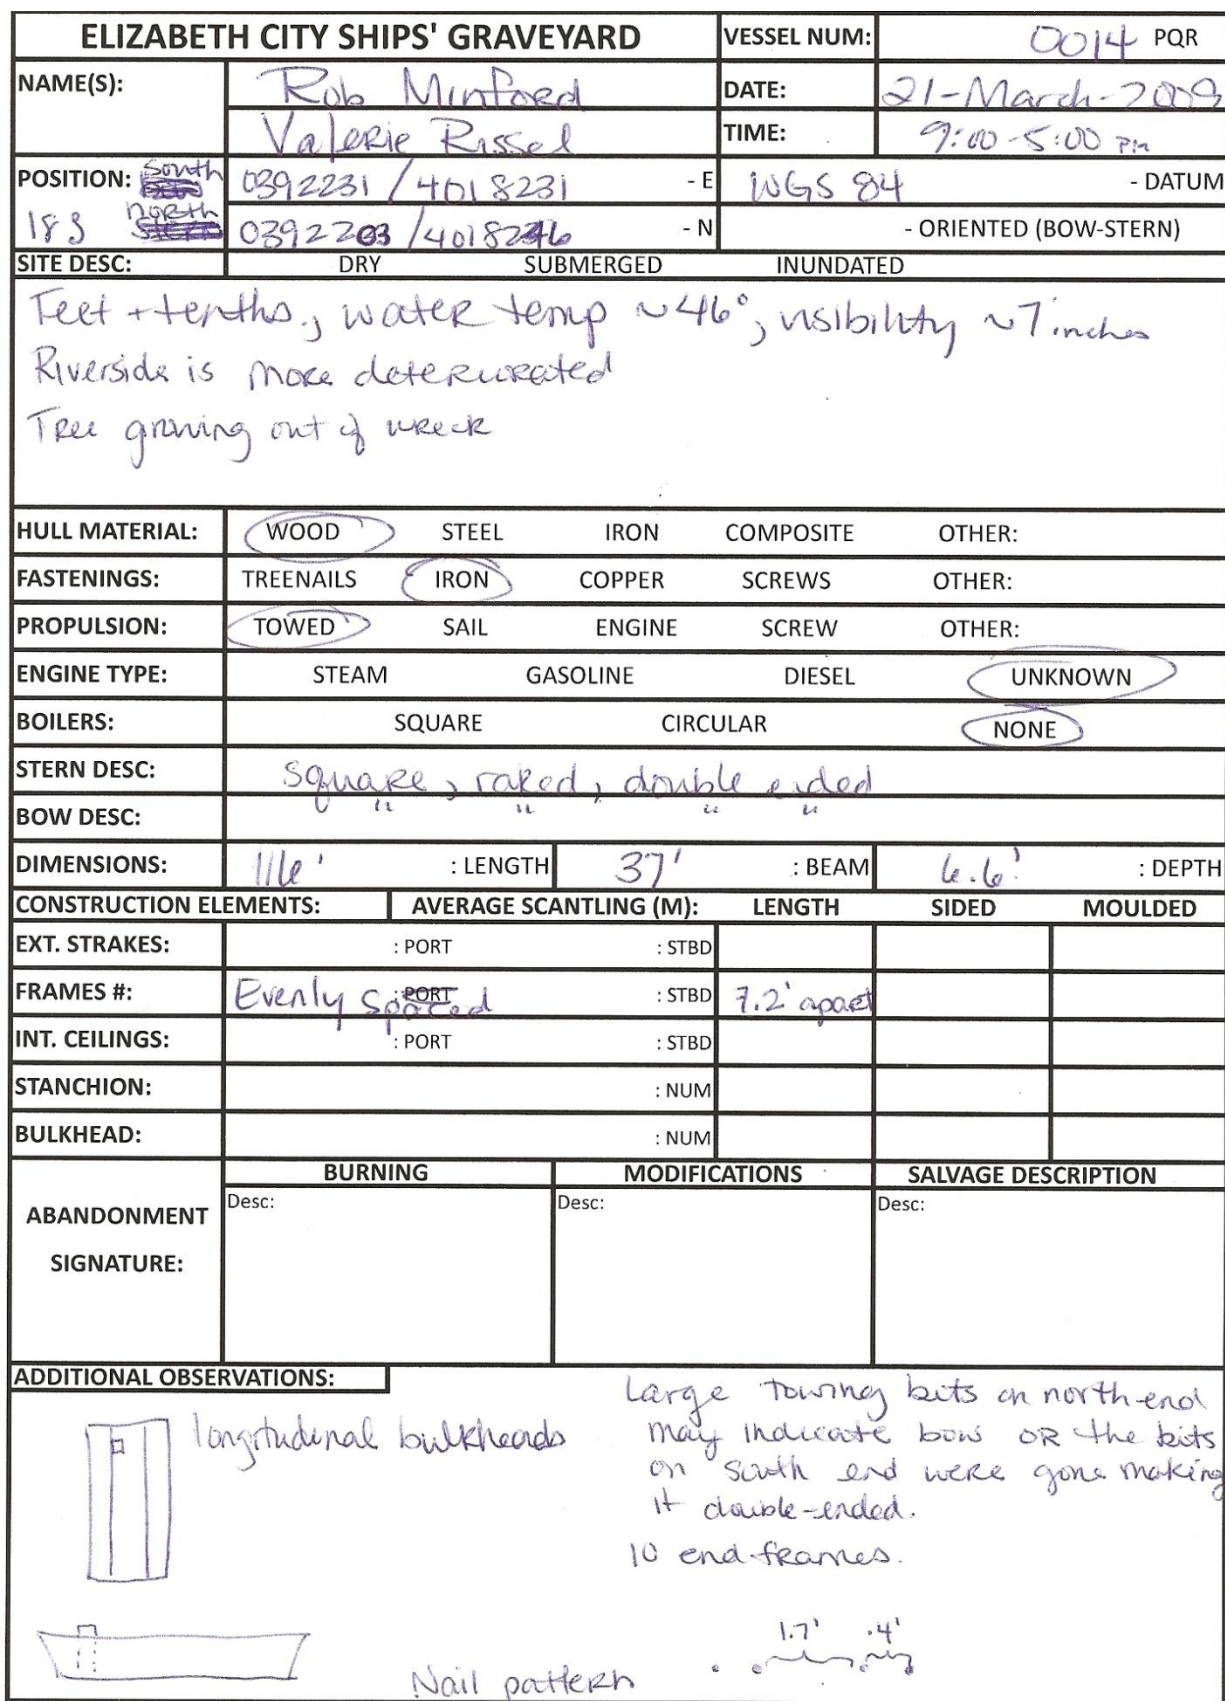 ELIZABETH CITY SHIPS' GRAVEYARD VESSEL NUM: 0014 PQR
NAME(S): Rob Minford DATE: 21-March-2009
Valerie Rissel TIME: 9:00-5:00 PM
POSITION: South 0392231/4018231 - E WGS 84 - DATUM
18S North 0392203/4018246 - N - ORIENTED (BOW-STERN)
SITE DESC: DRY SUBMERGED INUNDATED
Feet + tenths, water temp ~46°, visibility ~7 inches
Riverside is more deteriorated
Tree growing out of wreck
HULL MATERIAL: WOOD STEEL IRON COMPOSITE OTHER:
FASTENINGS: TREENAILS IRON COPPER SCREWS OTHER:
PROPULSION: TOWED SAIL ENGINE SCREW OTHER:
ENGINE TYPE: STEAM GASOLINE DIESEL UNKNOWN
BOILERS: SQUARE CIRCULAR NONE
STERN DESC: square, raked, double ended
BOW DESC: " " " "
DIMENSIONS: 116' : LENGTH 37' : BEAM 6.6' : DEPTH
CONSTRUCTION ELEMENTS: AVERAGE SCANTLING (M): LENGTH SIDED MOULDED
EXT. STRAKES: : PORT : STBD
FRAMES #: Evenly spaced : PORT : STBD 7.2' apart
INT. CEILINGS: : PORT : STBD
STANCHION: : NUM
BULKHEAD: : NUM
ABANDONMENT SIGNATURE: BURNING MODIFICATIONS SALVAGE DESCRIPTION
Desc: Desc: Desc:
ADDITIONAL OBSERVATIONS:
longitudinal bulkheads
Large towing bits on north-end
may indicate bow OR the bits
on south end were gone making
it double-ended.
10 end-frames.
1.7' .4'
Nail pattern